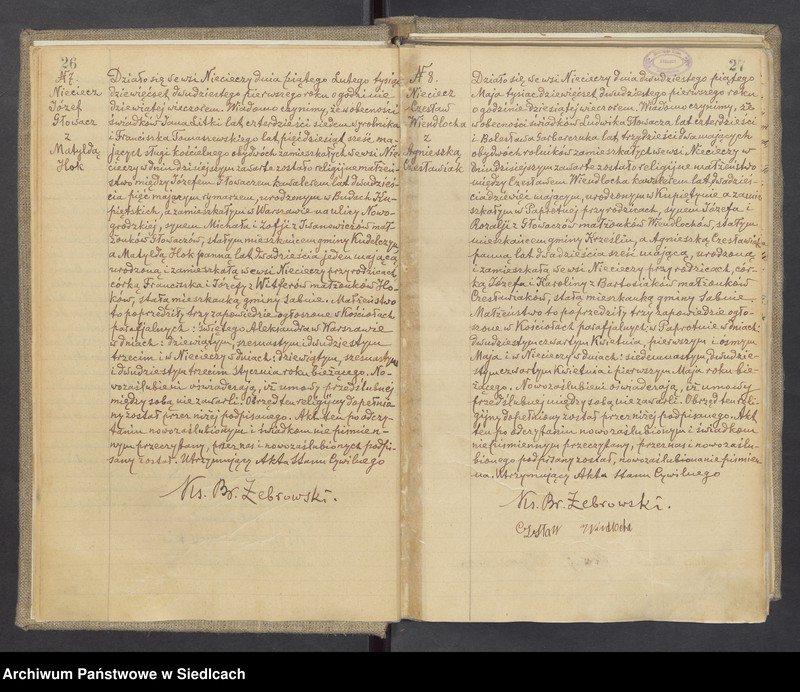 26
№7.
Nieciecz
Józef
Głowacz
z
Matyldą
Hok
Działo się we wsi Nieciecy dnia piątego Lutego tysiąc
dziewięćset dwudziestego pierwszego roku o godzinie
dziewiątej wieczorem. Wiadomo czynimy, że w obecności
świadków Jana Litki lat czterdzieści siedem wyrobnika
i Franciszka Tomaszewskiego lat pięćdziesiąt sześć ma-
jących sługi kościelnego obydwóch zamieszkałych we wsi Nie-
cieczy w dniu dzisiejszym zawarte zostało religijne małżeń-
stwo między Józefem Głowaczem kawalerem lat dwadzieś-
cia pięć mającym rymarzem, urodzonym w Budach Ku-
piętskich, a zamieszkałym w Warszawie na ulicy Nowo-
grodzkiej, synem Michała i Zofji z Iwanowiczów mał-
żonków Głowaczów, stałym mieszkańcem gminy Kudelczyn
a Matyldą Hok panną lat dwadzieścia jeden mającą,
urodzoną i zamieszkałą we wsi Nieciecy przy rodzicach
córką Franciszka i Józefy z Witferów małżonków Ho-
ków, stałą mieszkanką gminy Sabnie. Małżeństwo
to poprzedziły trzy zapowiedzie ogłoszone w Kościołach
parafjalnych: świętego Aleksandra w Warszawie
w dniach: dziewiątym, szesnastym i dwudziestym
trzecim i w Nieciecy w dniach: dziewiątym, szesnastym
i dwudziestym trzecim Stycznia roku bieżącego. No-
wozaślubieni oświadczają, iż umowy przedślubnej
między sobą nie zawarli. Obrzęd ten religijny dopełnia-
ny został przez niżej podpisanego. Akt ten po odczy-
taniu nowozaślubionym i świadkom niepismien-
nym przeczytany, przez nas i nowozaślubionych podpi-
sany został. Utrzymujący Akta Stanu Cywilnego
Ks. Br. Żebrowski.
27
№8.
Nieciecz
Czesław
Wiendlocha
z
Agnieszką
Czesławiak
Działo się we wsi Nieciecy dnia dwudziestego piątego
Maja tysiąc dziewięćset dwudziestego pierwszego roku
o godzinie dziesiątej wieczorem. Wiadomo czynimy, że
w obecności świadków Ludwika Głowacza lat czterdzieści
i Bolesława Garbarczuka lat trzydzieści dwa mających
obydwóch rolników zamieszkałych we wsi Nieciecy w
dniu dzisiejszym zawarte zostało religijne małżeństwo
między Czesławem Wiendlocha kawalerem lat dwadzieś-
cia dziewięć mającym, urodzonym w Kupiętynie a zamie-
szkałym w Paprotnej przy rodzicach, synem Józefa i
Rozalji z Głowaczów małżonków Wiendlochów, stałym
mieszkańcem gminy Krześlin, a Agnieszką Czesławiak
panną lat dwadzieścia sześć mającą, urodzoną
i zamieszkałą we wsi Nieciecy przy rodzicach, cór-
ką Józefa i Karoliny z Bartosiaków małżonków
Czesławiaków, stałą mieszkanką gminy Sabnie.
Małżeństwo to poprzedziły trzy zapowiedzie ogło-
szone w Kościołach parafjalnych: w Paprotnie w dniach:
dwudziestym czwartym Kwietnia, pierwszym i ósmym
Maja i w Nieciecy w dniach: siedemnastym, dwudzie-
stym czwartym Kwietnia i pierwszym Maja roku bie-
żącego. Nowozaślubieni oświadczają, iż umowy
przedślubnej między sobą nie zawarli. Obrzęd ten Reli-
gijny dopełniony został przez niżej podpisanego. Akt
ten po odczytaniu nowozaślubionym i świadkom
niepismiennym przeczytany, przez nas i nowozaślu-
bionego podpisany został, nowozaślubiona niepismien-
na. Utrzymujący Akta Stanu Cywilnego
Ks. Br. Żebrowski.
Czesław Windlocha
Archiwum Państwowe w Siedlcach